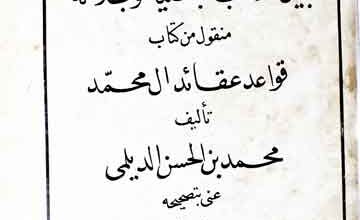 منقول من كتاب
قواعد عقائد ال محمّد
تأليف
محمد بن الحسن الديلمى
عنى بتصحيحه